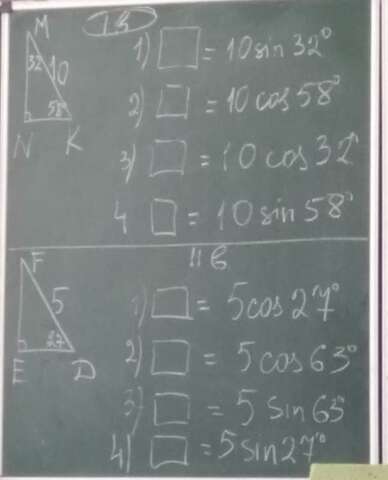 M
32 10
58°
N K
1) □ = 10 sin 32°
2) □ = 10 cos 58°
3) □ = 10 cos 32°
4 □ = 10 sin 58°
F
5
27
E D
1) □ = 5 cos 27°
2) □ = 5 cos 63°
3) □ = 5 sin 63°
4) □ = 5 sin 27°